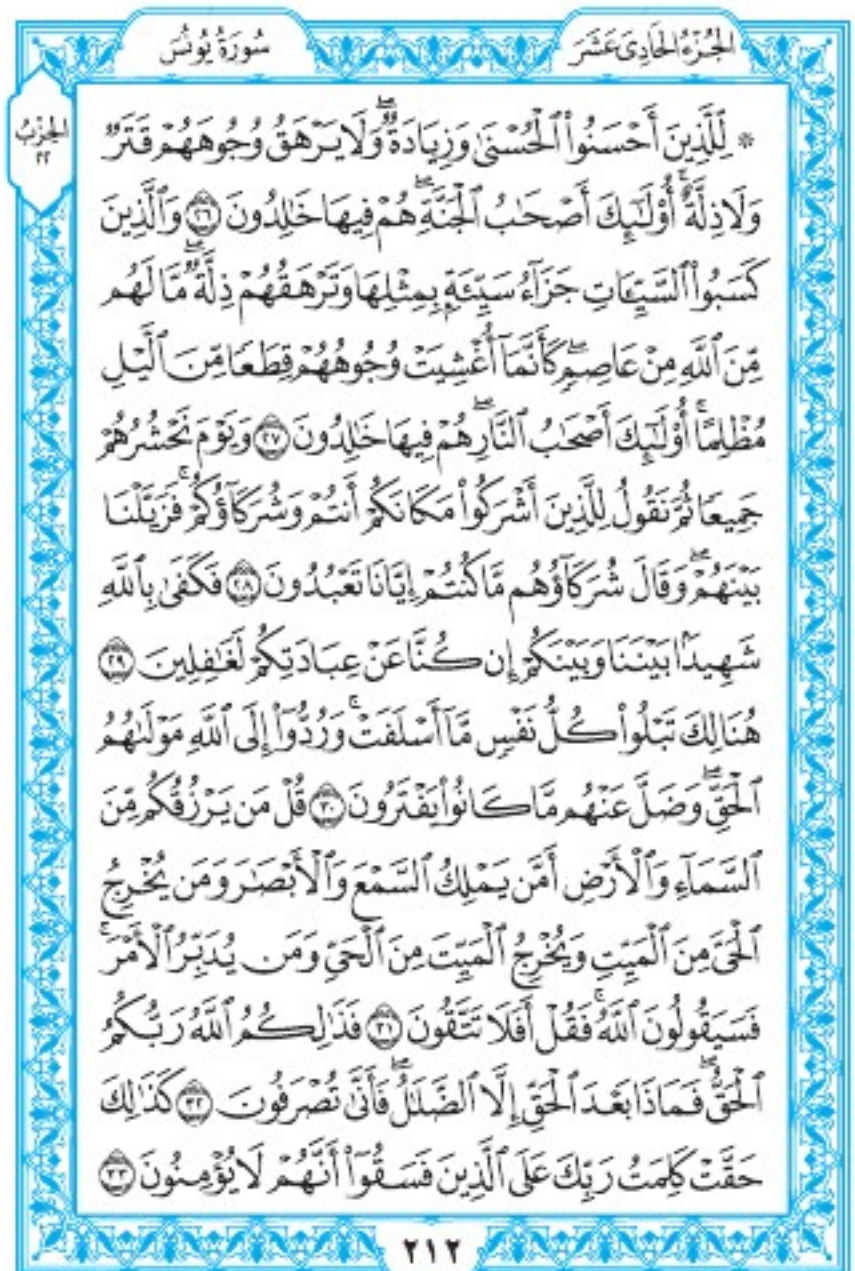 سُورَةُ يُونُسَ
الجُزْءُ الحَادِيَ عَشَرَ
الحِزْبُ
٢٢
۞ لِّلَّذِينَ أَحْسَنُوا۟ ٱلْحُسْنَىٰ وَزِيَادَةٌۖ وَلَا يَرْهَقُ وُجُوهَهُمْ قَتَرٌ
وَلَا ذِلَّةٌۚ أُو۟لَـٰٓئِكَ أَصْحَـٰبُ ٱلْجَنَّةِۖ هُمْ فِيهَا خَـٰلِدُونَ ٢٦ وَٱلَّذِينَ
كَسَبُوا۟ ٱلسَّيِّـَٔاتِ جَزَآءُ سَيِّئَةٍۭ بِمِثْلِهَا وَتَرْهَقُهُمْ ذِلَّةٌۖ مَّا لَهُم
مِّنَ ٱللَّهِ مِنْ عَاصِمٍۖ كَأَنَّمَآ أُغْشِيَتْ وُجُوهُهُمْ قِطَعًا مِّنَ ٱلَّيْلِ
مُظْلِمًاۚ أُو۟لَـٰٓئِكَ أَصْحَـٰبُ ٱلنَّارِۖ هُمْ فِيهَا خَـٰلِدُونَ ٢٧ وَيَوْمَ نَحْشُرُهُمْ
جَمِيعًا ثُمَّ نَقُولُ لِلَّذِينَ أَشْرَكُوا۟ مَكَانَكُمْ أَنتُمْ وَشُرَكَآؤُكُمْۚ فَزَيَّلْنَا
بَيْنَهُمْۖ وَقَالَ شُرَكَآؤُهُم مَّا كُنتُمْ إِيَّانَا تَعْبُدُونَ ٢٨ فَكَفَىٰ بِٱللَّهِ
شَهِيدًۢا بَيْنَنَا وَبَيْنَكُمْ إِن كُنَّا عَنْ عِبَادَتِكُمْ لَغَـٰفِلِينَ ٢٩
هُنَالِكَ تَبْلُوا۟ كُلُّ نَفْسٍ مَّآ أَسْلَفَتْۚ وَرُدُّوٓا۟ إِلَى ٱللَّهِ مَوْلَىٰهُمُ
ٱلْحَقِّۖ وَضَلَّ عَنْهُم مَّا كَانُوا۟ يَفْتَرُونَ ٣٠ قُلْ مَن يَرْزُقُكُم مِّنَ
ٱلسَّمَآءِ وَٱلْأَرْضِ أَمَّن يَمْلِكُ ٱلسَّمْعَ وَٱلْأَبْصَـٰرَ وَمَن يُخْرِجُ
ٱلْحَىَّ مِنَ ٱلْمَيِّتِ وَيُخْرِجُ ٱلْمَيِّتَ مِنَ ٱلْحَىِّ وَمَن يُدَبِّرُ ٱلْأَمْرَۚ
فَسَيَقُولُونَ ٱللَّهُۚ فَقُلْ أَفَلَا تَتَّقُونَ ٣١ فَذَٰلِكُمُ ٱللَّهُ رَبُّكُمُ
ٱلْحَقُّۖ فَمَاذَا بَعْدَ ٱلْحَقِّ إِلَّا ٱلضَّلَـٰلُۖ فَأَنَّىٰ تُصْرَفُونَ ٣٢ كَذَٰلِكَ
حَقَّتْ كَلِمَتُ رَبِّكَ عَلَى ٱلَّذِينَ فَسَقُوٓا۟ أَنَّهُمْ لَا يُؤْمِنُونَ ٣٣
٢١٢